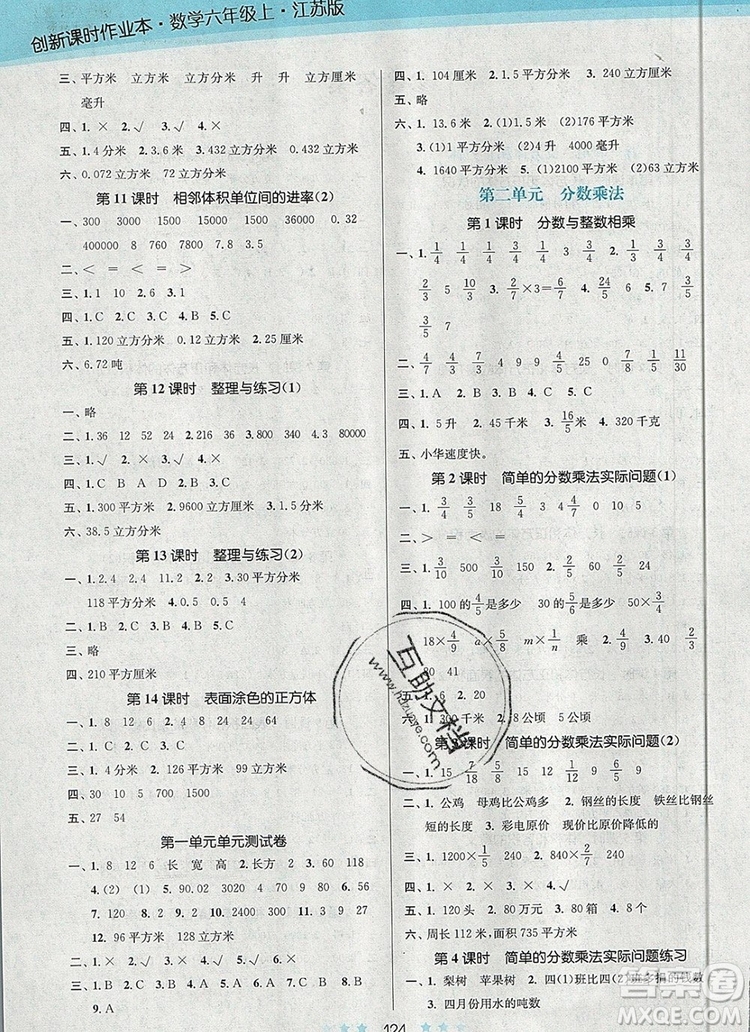 创新课时作业本·数学六年级上·江苏版
三、平方米 立方米 立方分米 升 升 立方厘米
毫升
四、1.× 2.√ 3.√ 4.×
五、1.4分米 2.3.6米 3.0.432立方米
六、0.072立方米 0.432立方米
第11课时 相邻体积单位间的进率(2)
一、300 3000 1500 15000 36000 0.32
400000 8 760 7800 3500 15000
二、< = < >
三、1.1 10 2.6 3.1
四、1.C 2.B 3.A 4.B 5.C
五、1.120立方分米 0.12立方米 2.25厘米
六、6.72吨
第12课时 整理与练习(1)
一、略
二、1.36 12 52 24 2.216 36 3.2 4.80000
三、1.√ 2.× 3.√ 4.×
四、1.C B A D 2.C 3.B
五、1.300平方米 2.9600立方厘米 3.1.5分米
六、38.5立方分米
第13课时 整理与练习(2)
一、1.2.4 2.4 11.2 2.2 3.30立方分米
118平方分米 4.0.5 0.5 4
二、1.B 2.C 3.A 4.C 5.B 6.A
三、略
四、210平方厘米
第14课时 表面涂色的正方体
一、1.8 12 6 2.4 8 24 24 64
二、1.C 2.C 3.A 4.C
三、1.4分米 2.126平方米 3.99立方米
四、略
五、27 54
第一单元单元测试卷
一、1.8 6 12 长 宽 高 2.长方 3.60 118
4.(2) 5.90.02 9020 2400 0.35 15
6.0.12 7.18 8.2 9.24 10.6 11.30
12.96平方分米 13.150 125
二、1.× 2.× 3.× 4.× 5.√
三、1.B 2.B 3.B 4.A 5.C 6.C 7.C 8.B
9.A
四、1.104厘米 2.1.5平方分米 3.200千克
五、略
六、1.13.6平方米 2.(1)1.5米 (2)16平方米
3.(1)1平方米 (2)4升 4000毫升
4.1640平方米 5.(1)2100平方米 (2)63立方米
第二单元 分数乘法
第1课时 分数与整数相乘
一、1.1/4 1/4 1/4 3/4 3 1/4 3/4 2.3/5 3/5 3/5
2/3 5 10 3.2/7×3=6/7 4.24/5 15 2/7 5.3/5
6.3/5 9/10
二、4/7 3/4 20/3 4 25/2 0 7/8 9/8 1/2 11/30
三、1.A 2.B 3.C 4.A 5.C
四、1.5升 2.45千米 3.16/5米 4.320千克
五、小华速度快。
第2课时 简单的分数乘法实际问题(1)
一、1.3/4 3/5 3/10 3/4 4/3 0 10 5
二、> = < = <
三、1.3/10 2.4/5 60 3.21 4.2/5 20
四、1.10的4/5是多少 30的5/6是多少 2.8
18×4/9 a×5/8 m×1/n 乘 3.2/5 2/5 4.B
80 41
五、1.6 2.20
六、1.300千米 2.8公顷 5公顷
第3课时 简单的分数乘法实际问题(2)
一、1.15 7/18 5/8 15 12 9 0 9/5
二、1.公鸡 母鸡比公鸡多 2.钢丝的长度 铁丝比钢丝
短的长度 3.彩电原价 现价比原价降低的
三、1.1200×1/4 2.9/20 3/20 3.A 4.B
四、1.× 2.× 3.× 4.×
五、1.120头 2.4/5万元 3.80箱 4.8个
六、周长112米，面积735平方米
第4课时 简单的分数乘法实际问题练习
一、1.梨树 苹果树 2.四(1)班比四(2)班多捐的钱数
3.四月份用水的吨数
124
互助文档
www.hazuoye.com
答案圈
MXQE.COM